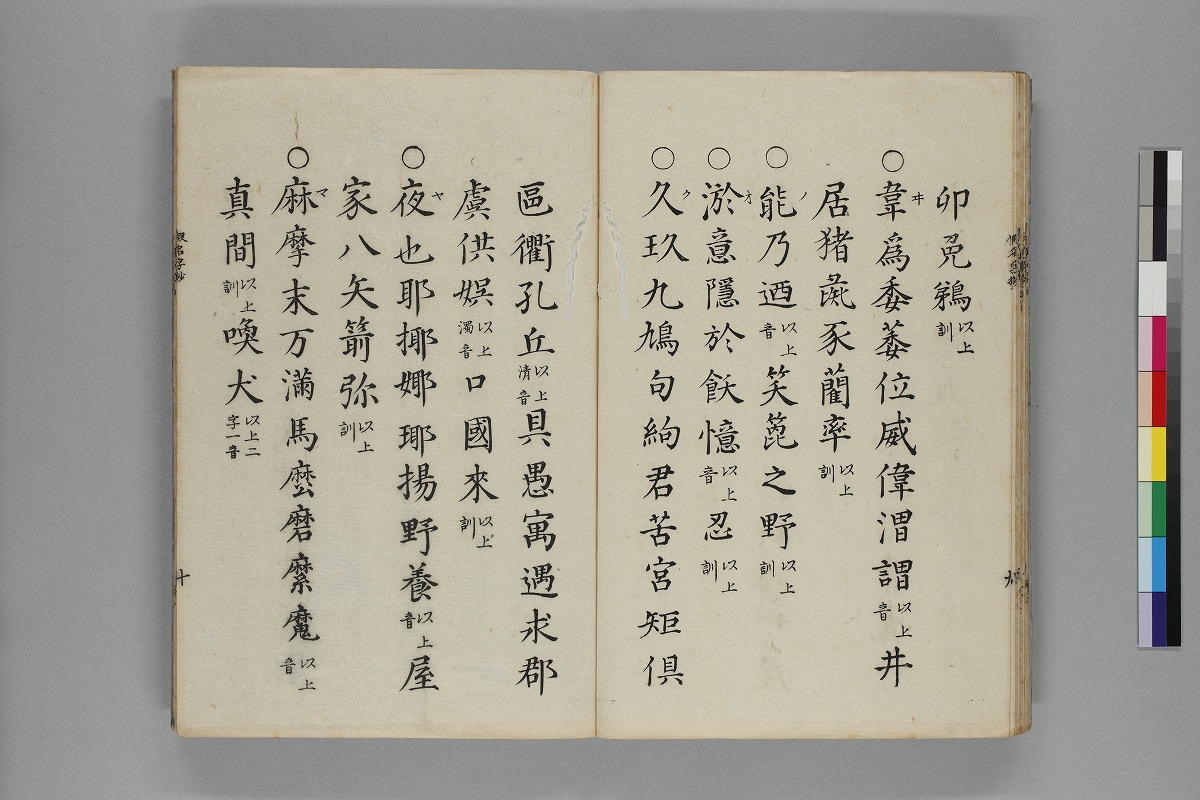 卯兎鵜以上訓
○韋ヰ爲委萎位威偉渭謂以上音井
居猪㲋豕藺率以上訓
○能ノ乃迺以上音笑箆之野以上訓
○淤オ意隱於飫憶以上音忍以上訓
○久ク玖九鳩句絇君苦宮矩倶
區衢孔丘以上清音具愚寓遇求郡
虞供娯以上濁音口國來以上訓
○夜ヤ也耶揶㖿瑘揚野養以上音屋
家八矢箭弥以上訓
○麻マ摩末万滿馬麽磨縻魔以上音
真間以上訓喚犬以上二字一音
假名字抄
十
九